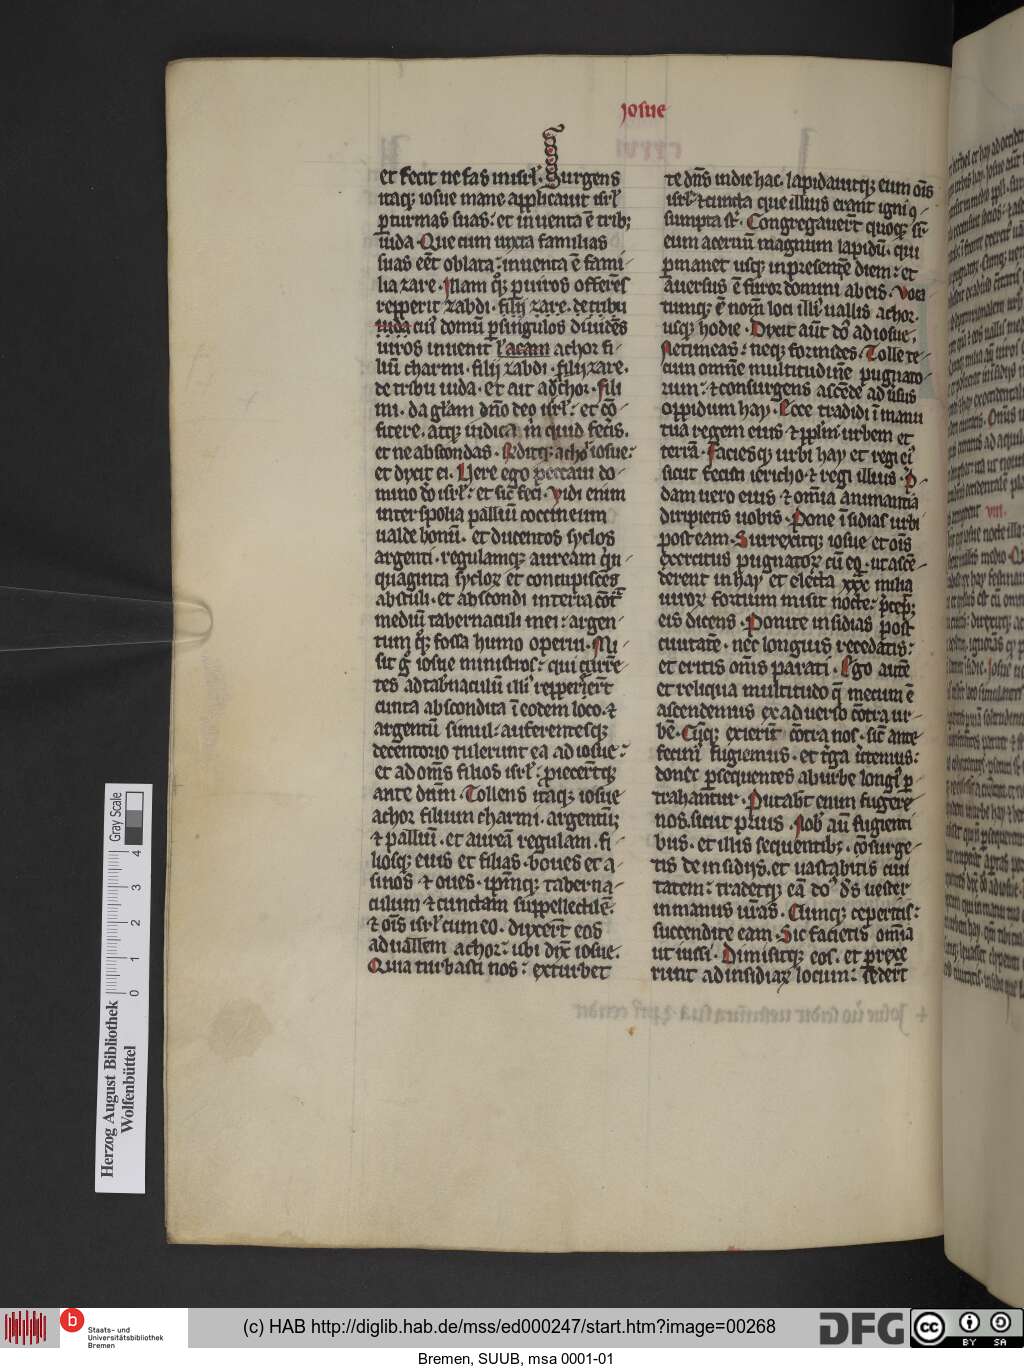 iosue
et fecit nefas in isrł. Surgens
itaq; iosue mane applicauit isrł
ꝑ turmas suas: et inuenta ē trib;
iuda. Que cum iuxta familias
suas eēt oblata: inuenta ē fami
lia zare. Illam qꝫ ꝑ uiros offerēs
repperit zabdi. filij zare. de tribu
iuda cuiꝰ domū ꝑ singulos diuidēs
uiros inuenit ł acam achor fi
liū charmi. filij zabdi. filij zare.
de tribu iuda. Et ait ad achor. fili
mi. da głam dn̄o deo isrł: et cō
fitere. atq; indica m̄ quid fecis.
et ne abscondas. Rn̄ditq; achor iosue:
et dixit ei. Uere ego peccaui do
mino dō isrł: et sic feci. Uidi enim
inter spolia palliū coccineum
ualde bonū. et ducentos syclos
argenti. regulamq; auream qn
quaginta sycloꝝ et concupiscēs
abstuli. et abscondi in terra cōtͣ
mediū tabernaculi mei: argen
tum qꝫ fossa humo operui. Mi
sit g̊ iosue ministros: qui curre
tes ad tabnaculū illiꝰ repperierūt
cuncta abscondita ī eodem loco. ⁊
argentū simul: auferentesq;
de tentorio tulerunt ea ad iosue:
et ad om̄s filios isrł: proiecerūtq;
ante dūm. Tollens itaq; iosue
achor filium charmi. argentūq;
⁊ palliū. et aureā regulam. fi
liosq; eius et filias. boues et a
sinos ⁊ oues. ipm̄q; taberna
culum ⁊ cunctam suppellectilē.
⁊ ois isrł cum eo. dixerūt eos
ad uallem achor: ubi dix̄ iosue.
Quia turbasti nos: exturbet
te dn̄s in die hac. lapidauitq; eum ois
isrł. ⁊ cuncta que illius erant igni ꝯ
sumpta st̄. Congregauerūt quoq; sr̄
eum aceruū magnum lapidū. qui
ꝑmanet usq; in presente diem: et
auersus ē furor domini ab eis. Uoca
tumq; ē nom̄ loci illiꝰ uallis achor.
usq; hodie. Dixit aūt dn̄s ad iosue.
Ne timeas: neq; formides. Tolle te
cum omnē multitudinē pugnato
rum: ⁊ consurgens ascende ad usus
oppidum hay. Ecce tradidi ī manu
tua regem eius ⁊ ppłm urbem et
terrā. Faciesq; urbi hay et regi eiꝰ
sicut fecisti iericho ⁊ regi illius. P̄
dam uero eius ⁊ om̄ia animantia
diripietis uobis. Pone ī sidias urbi
post eam. Surrexitq; iosue et ois
exercitus pugnatoꝝ cū eo. ut ascē
derent in hay et electa xxx milia
uiroꝝ fortium misit nocte: p̄cepitq;
eis dicens. Ponite insidias post
ciuitatē. nec longius recedatis:
et eritis om̄s parati. Ego autē
et reliqua multitudo q̄ mecum ē
ascendemus ex aduerso cōtra ur
bē. Cūq; exierit̄ cōtra nos. sic̄ ante
fecimꝰ fugiemus. et t̄ga utemus:
donec ꝑsequentes ab urbe longiꝰ ꝓ
trahantur. Putabt̄ enim fugere
nos sicut prius. Nob̄ aū fugienti
bus. et illis sequentibꝫ. cōsurge
tis de insidijs. et uastabitis ciui
tatem: tradetq; eā dn̄s ds̄ uester
in manus ur̄as. Cumq; ceperitis:
succendite eam. Sic facietis om̄ia
ut iussi. Dimisitq; eos. et prexe
runt ad insidiaꝝ locum: sederūt
Herzog August Bibliothek
Wolfenbüttel
Gray Scale
0 1 2 3 4
b Staats- und
Universitätsbibliothek
Bremen
(c) HAB http://diglib.hab.de/mss/ed000247/start.htm?image=00268
DFG
cc BY SA
Bremen, SUUB, msa 0001-01